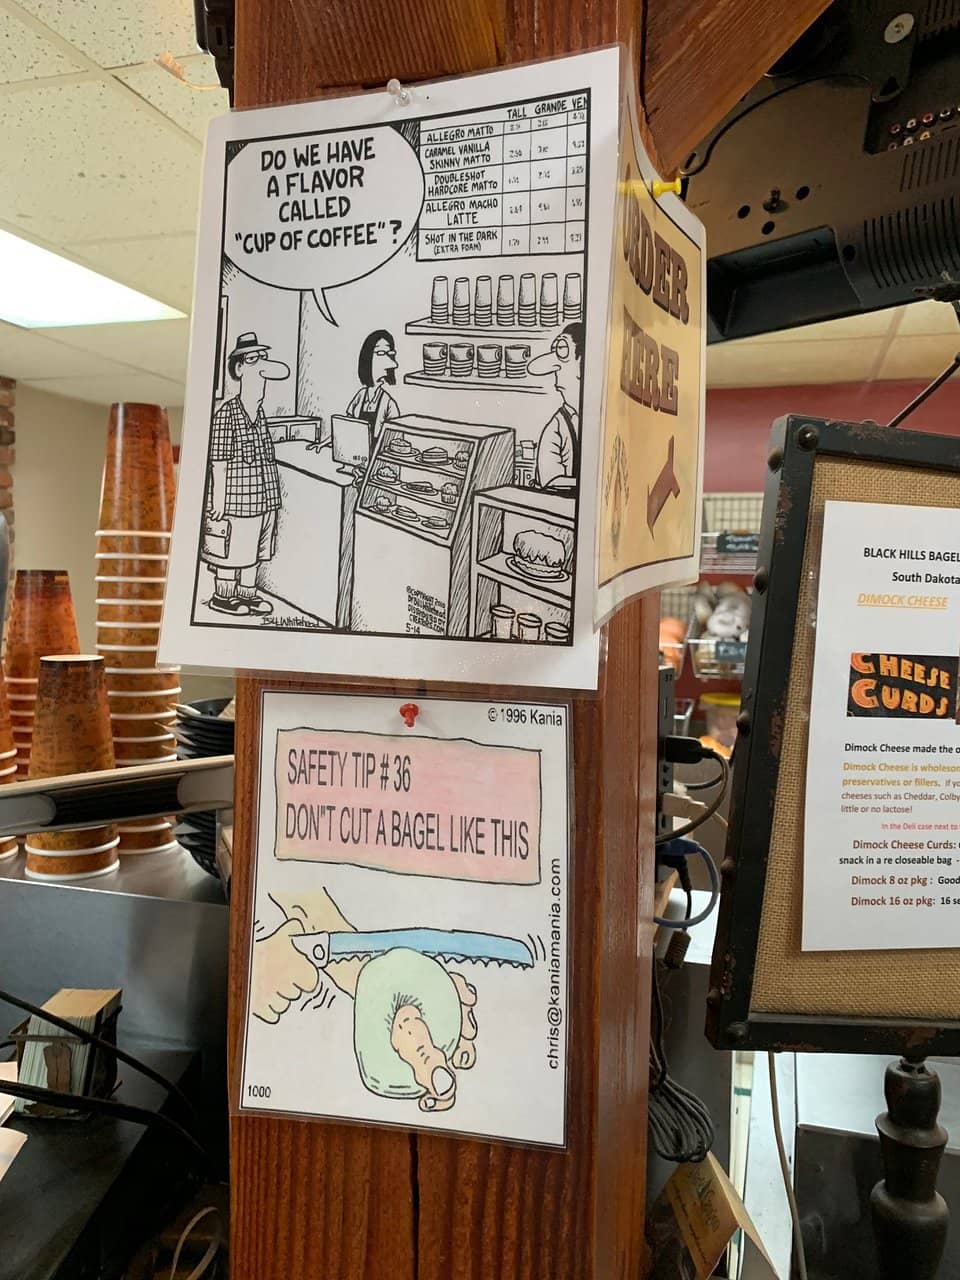 DO WE HAVE
A FLAVOR
CALLED
"CUP OF COFFEE"?
TALL GRANDE VEN
ALLEGRO MATTO
CARAMEL VANILLA
SKINNY MATTO
DOUBLESHOT
HARDCORE MATTO
ALLEGRO MACHO
LATTE
SHOT IN THE DARK
(EXTRA FOAM)
©COPYRIGHT 2010
DISTRIBUTED BY
CREATORS.COM
5-14
Bill Whitehead
ORDER
HERE
© 1996 Kania
SAFETY TIP # 36
DON"T CUT A BAGEL LIKE THIS
chris@kaniamania.com
1000
BLACK HILLS BAGEL
South Dakota
DIMOCK CHEESE
CHEESE
CURDS
Dimock Cheese made the o
Dimock Cheese is wholesom
preservatives or fillers. If yo
cheeses such as Cheddar, Colby
little or no lactose!
In the Deli case next to
Dimock Cheese Curds:
snack in a re closeable bag -
Dimock 8 oz pkg : Good
Dimock 16 oz pkg: 16 se